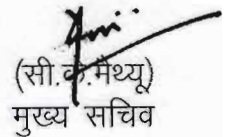 (सी.के.मैथ्यू)
मुख्य सचिव